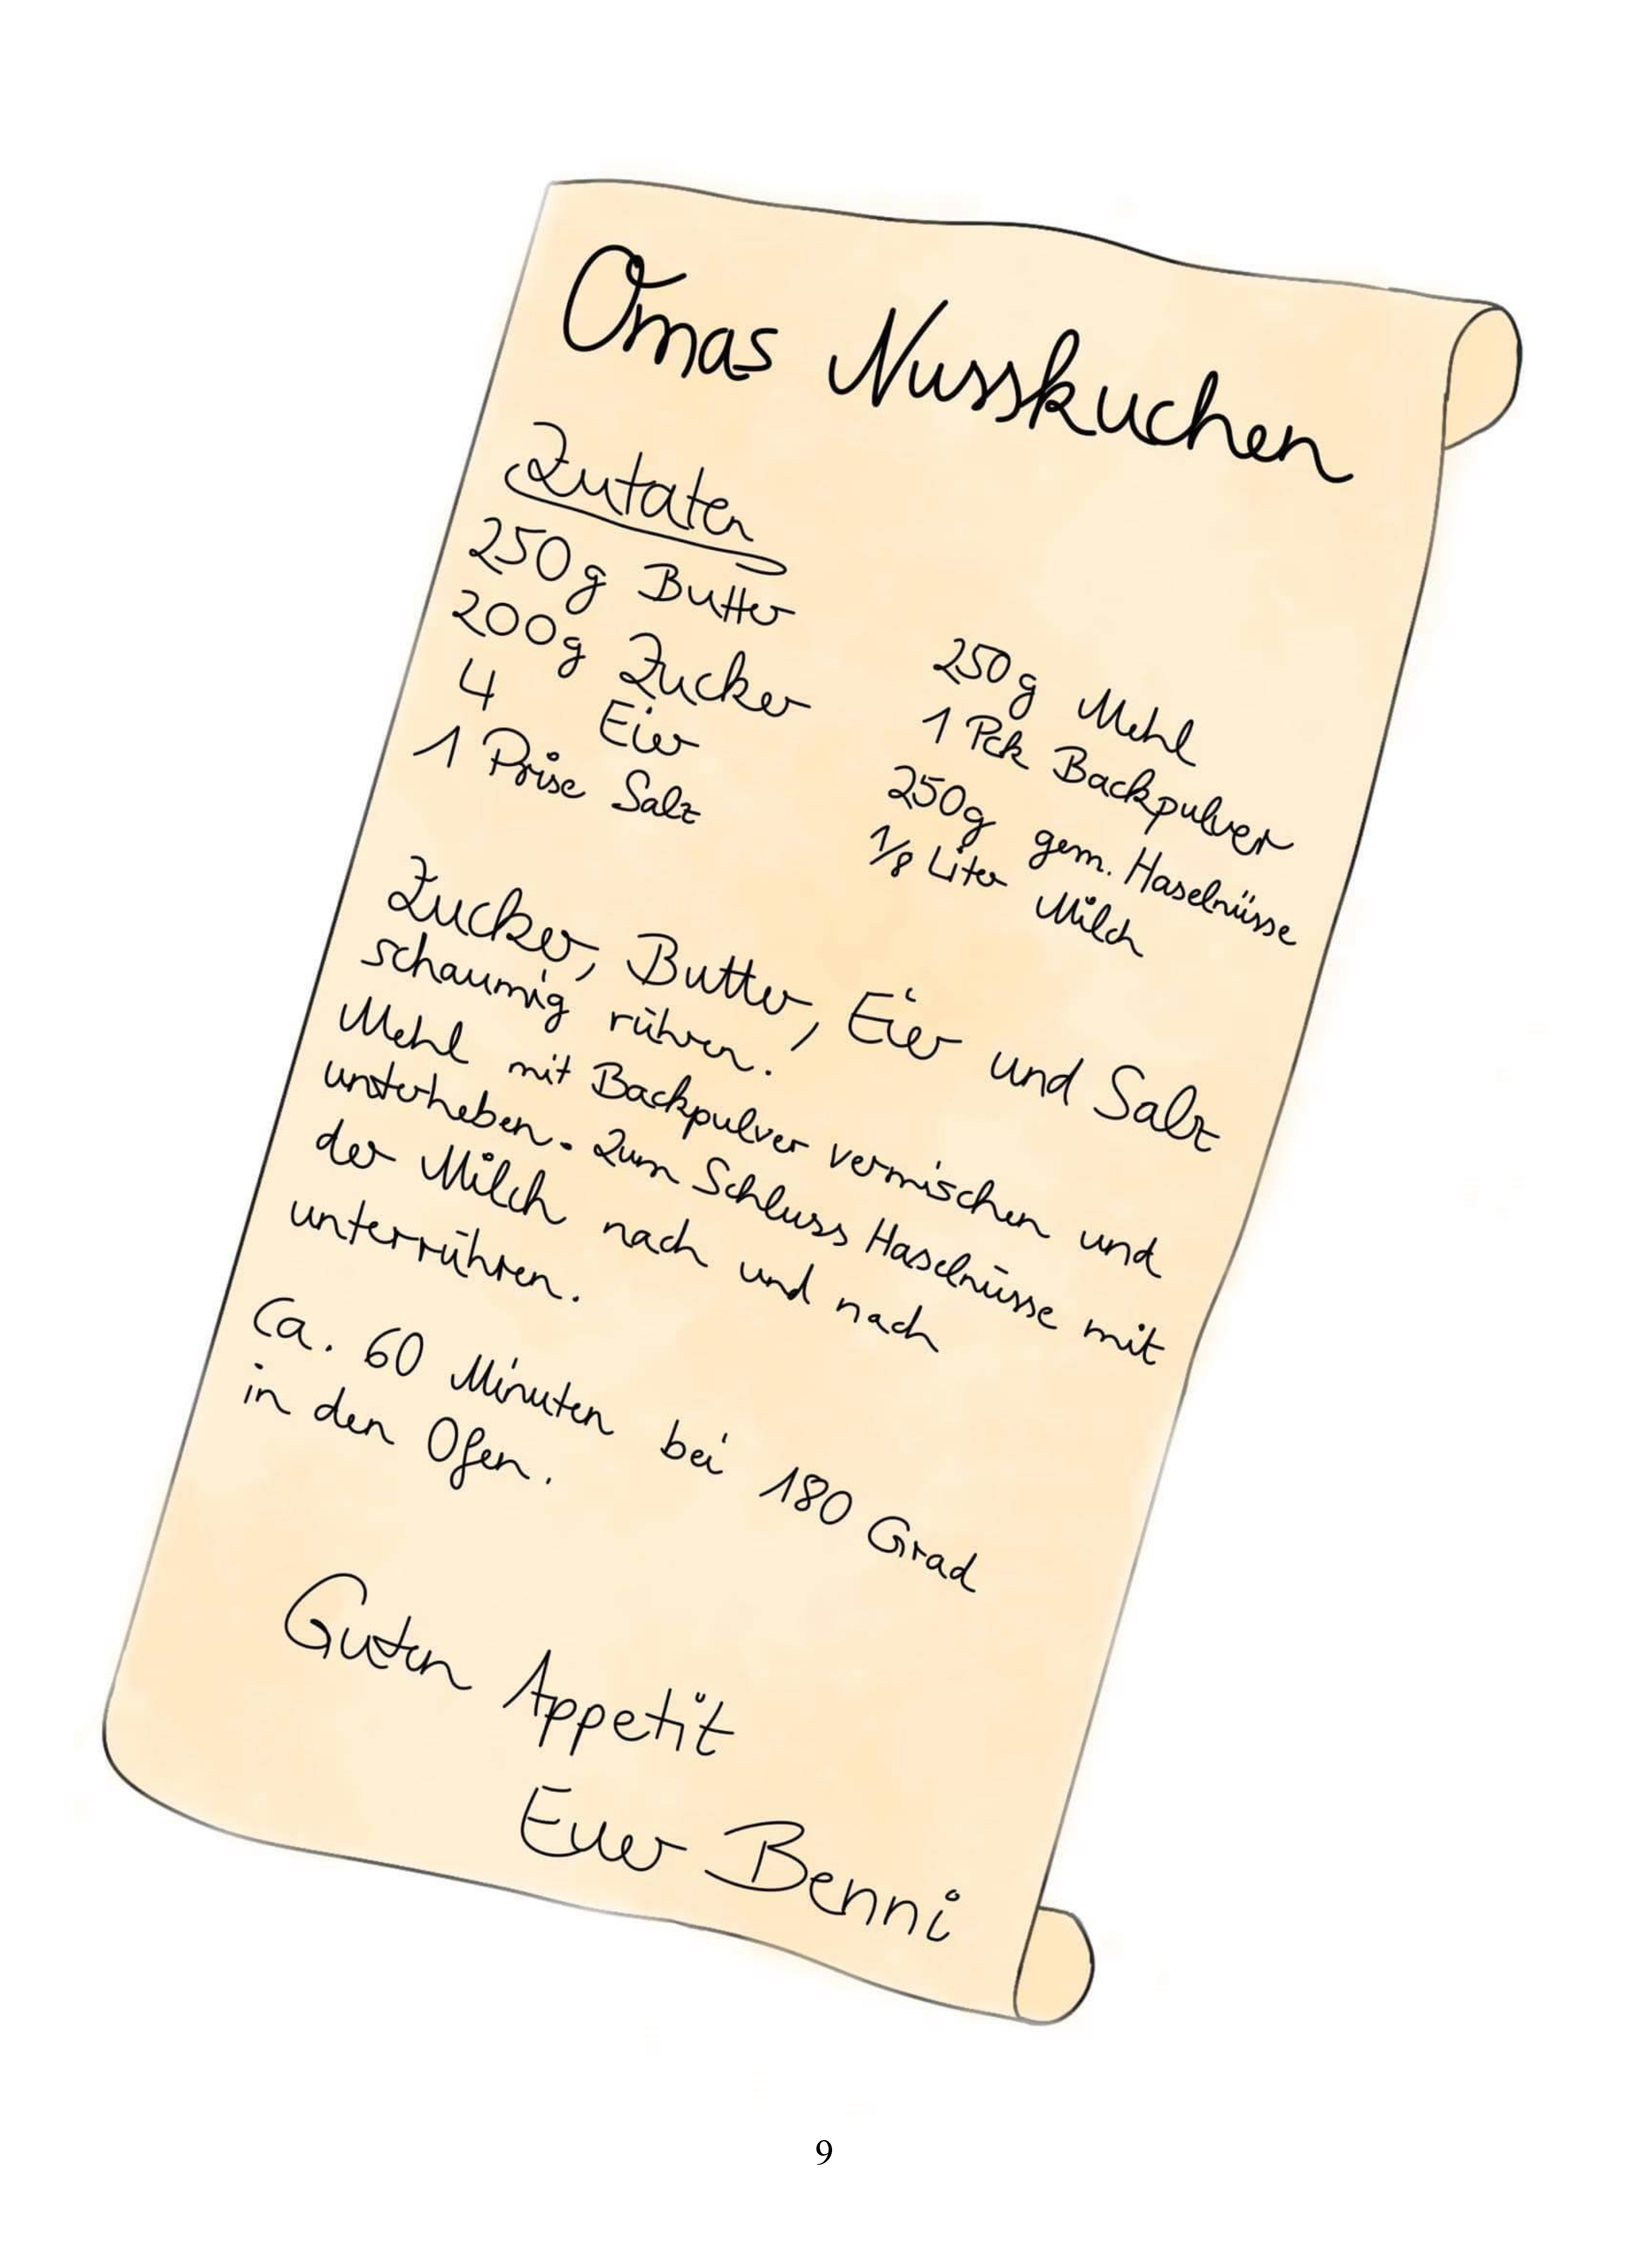 Omas Nusskuchen
Zutaten
250g Butter
200g Zucker
4 Eier
1 Prise Salz
250g Mehl
1 Pck Backpulver
250g gem. Haselnüsse
1/8 Liter Milch
Zucker, Butter, Eier und Salz
schaumig rühren.
Mehl mit Backpulver vermischen und
unterheben. Zum Schluss Haselnüsse mit
der Milch nach und nach
unterrühren.
Ca. 60 Minuten bei 180 Grad
in den Ofen.
Guten Appetit
Euer Benni
9